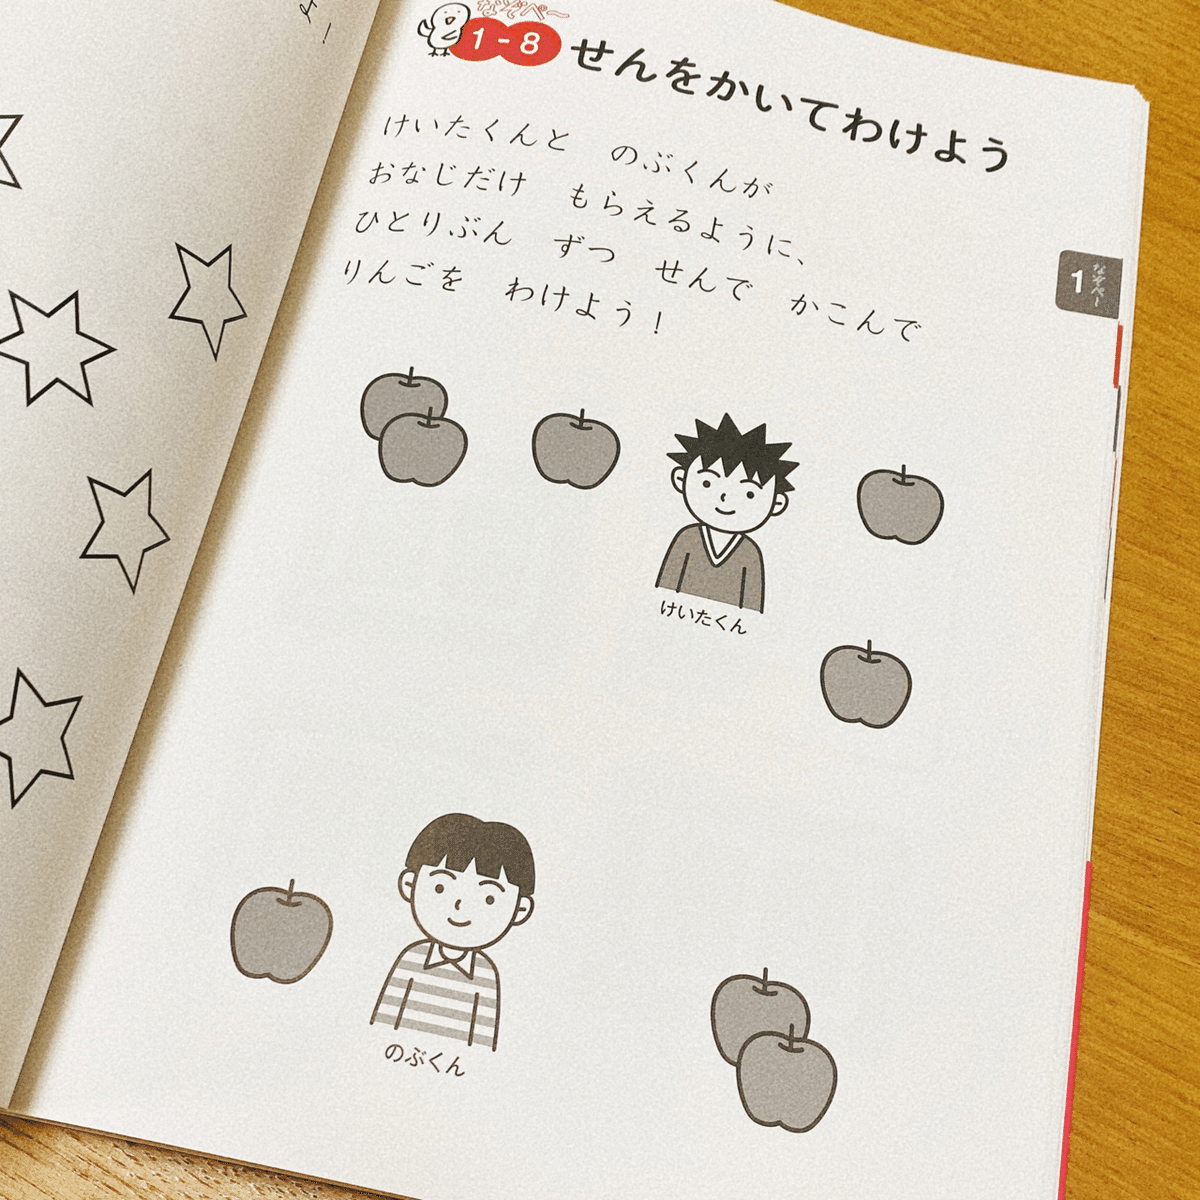 なぞペー
1-8 せんをかいてわけよう
けいたくんと　のぶくんが
おなじだけ　もらえるように、
ひとりぶん　ずつ　せんで　かこんで
りんごを　わけよう！
1 なぞペー
けいたくん
のぶくん